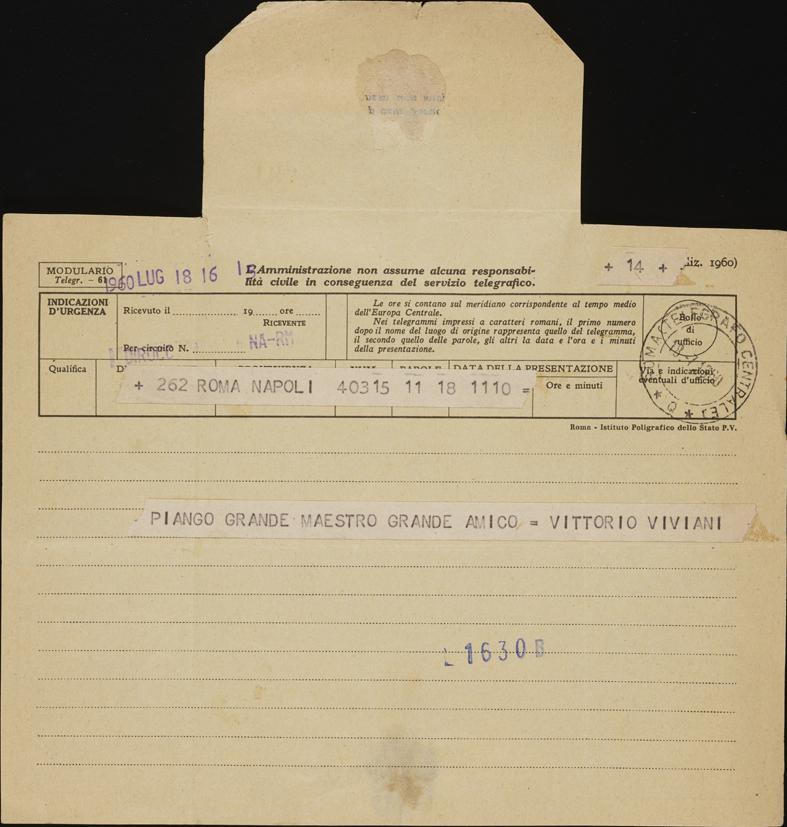 MODULARIO
Telegr. - 61
1960 LUG 18 16
L'Amministrazione non assume alcuna responsabi-
lità civile in conseguenza del servizio telegrafico.
+ 14 +
diz. 1960)
INDICAZIONI
D'URGENZA
Ricevuto il 19 ore
RICEVENTE
Per circuito N.
NA-RM
Le ore si contano sul meridiano corrispondente al tempo medio
dell'Europa Centrale.
Nei telegrammi impressi a caratteri romani, il primo numero
dopo il nome del luogo di origine rappresenta quello del telegramma,
il secondo quello delle parole, gli altri la data e l'ora e i minuti
della presentazione.
Bollo
di
ufficio
ROMA (TELEGRAFO CENTRALE)
Qualifica
DATA DELLA PRESENTAZIONE
Ore e minuti
Via e indicazioni
eventuali d'ufficio
+ 262 ROMA NAPOLI 40315 11 18 1110 =
Roma - Istituto Poligrafico dello Stato P.V.
PIANGO GRANDE MAESTRO GRANDE AMICO = VITTORIO VIVIANI
1630B